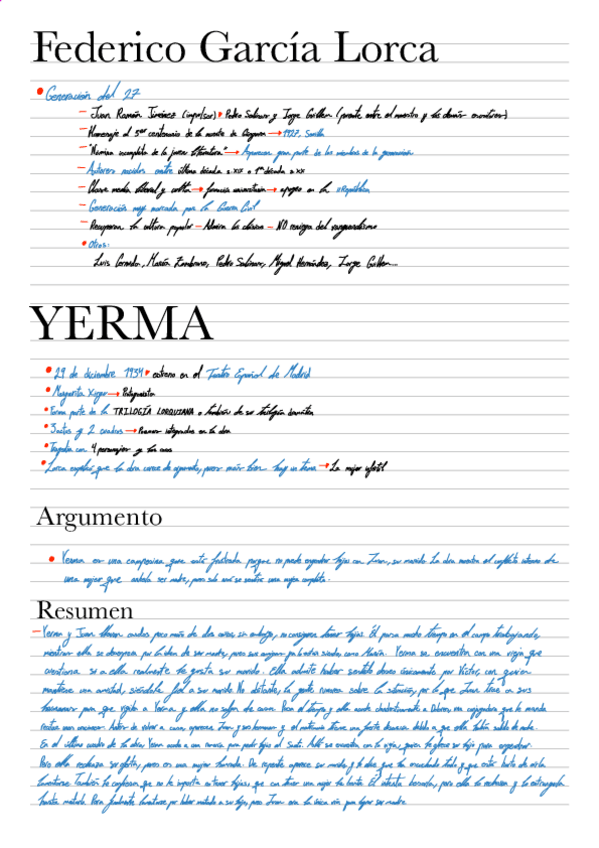 Federico García Lorca
Generación del 27
Juan Ramón Jiménez (impulsor) Pedro Salinas y Jorge Guillén (puente entre el maestro y los demás)
Homenaje al 3er centenario de la muerte de Góngora → 1927, Sevilla
"Nómina incompleta de la joven literatura" → Aparecen gran parte de los miembros de la generación
Autores nacidos entre última década s.XIX o 1ª década s.XX
Clase media liberal y culta → formación universitaria → apogeo en la República
Generación muy marcada por la Guerra Civil
Recuperan la cultura popular – Admiran lo clásico – NO reniegan del vanguardismo
Otros:
Luis Cernuda, María Zambrano, Pedro Salinas, Miguel Hernández, Jorge Guillén...
YERMA
29 de diciembre 1934 estreno en el Teatro Español de Madrid
Margarita Xirgu → Protagonista
Forma parte de la TRILOGÍA LORQUIANA o también de su trilogía dramática
3 actos y 2 cuadros → integrados en la obra
Tragedia con 4 personajes y los coros
Lorca explica que la obra carece de argumento, pero más bien hay un tema → La mujer estéril
Argumento
Yerma es una campesina que está frustrada porque no puede engendrar hijos con Juan, su marido. La obra muestra el conflicto interno de
una mujer que anhela ser madre, pero solo así se sentiría una mujer completa.
Resumen
Yerma y Juan llevan casados poco más de dos años, sin embargo, no consiguen tener hijos. Él pasa mucho tiempo en el campo trabajando,
mientras ella se desespera por la idea de ser madre, pues sus amigas ya lo están siendo, como María. Yerma se encuentra con una vieja que
cuestiona si a ella realmente le gusta su marido. Ella admite haber sentido deseo únicamente por Víctor, con quien
mantiene una amistad, siéndole fiel a su marido. No obstante, la gente rumorea sobre la situación, por lo que Juan trae a sus
hermanas para que vigilen a Yerma y ella no salga de casa. Pasa el tiempo y ella acude a Dolores, una conjuradora que le manda
Antes de volver a casa aparece Juan y sus hermanas y el matrimonio tiene una fuerte discusión debido a que ella había salido de noche.
En el último cuadro de la obra Yerma acude a una romería para pedir hijos al Santo. Allí se encuentra con la vieja, quien le ofrece su hijo para engendrar.
Pero ella rechaza su oferta, pues es una mujer honrada. De repente aparece su marido y le dice que ha escuchado todo y que está harto de sus
lamentos. También le confiesa que no le importa no tener hijos, que con tener una mujer le basta. Él intenta besarla, pero ella lo rechaza y lo estrangula
hasta matarlo. Para finalmente lamentarse por haber matado a su hijo, pues Juan era la única vía para lograr ser madre.